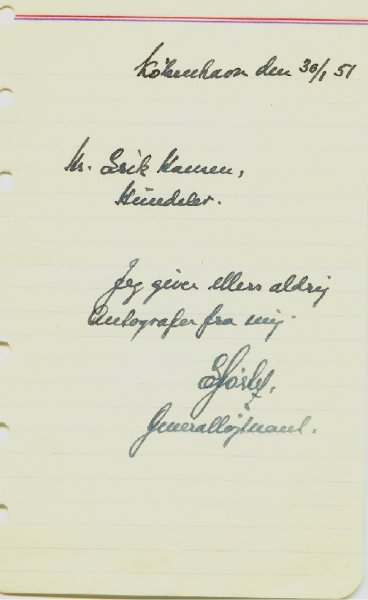 København den 30/1 51
Hr. Erik Hansen,
Jeg giver ellers aldrig
Autografer fra mig.
Generalløjtnant.